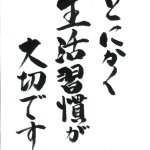 とにかく
生活習慣が
大切です